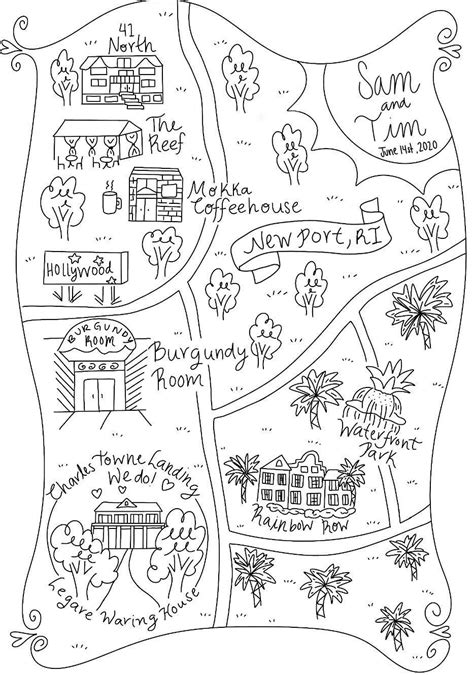 41
North
Sam
and
Tim
June 14st, 2020
The
Reef
Mokka
Coffeehouse
New Port, RI
Hollywood
BURGUNDY
ROOM
Burgundy
Room
Waterfront
Park
Charles Towne Landing
We do!
Rainbow Row
Legare Waring House